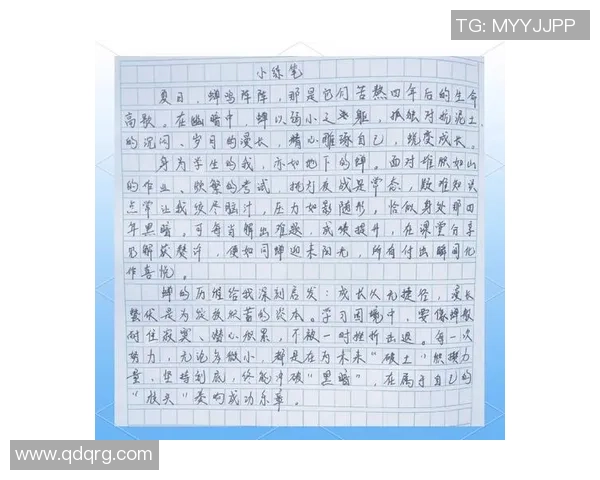 TG: MYYJJPP
小练笔
夏日，蝉鸣阵阵，那是它们苦熬四年后的生命
高歌。在幽暗中，蝉以弱小之躯，孤独对抗泥土
的沉闷、岁月的漫长，精心雕琢自己，蜕变成长。
身为学生的我，亦如地下的蝉。面对堆积如山
的作业、频繁的考试，挑灯夜战是常态，疑难知识
点常让我绞尽脑汁，压力如影随形，恰似身处那四
年黑暗。可每当解出难题，成绩提升，在课堂分享
见解获赞许，便如同蝉迎来阳光，所有付出瞬间化
作喜悦。
蝉的历程给我深刻启发：成长从无捷径，漫长
蛰伏是为发技积蓄的资本。学习困境中，要像蝉般
耐住寂寞、潜心积累，不被一时挫折击退。每一次
努力，无论多微小，都是在为未来“破土”积攒力
量，坚持到底，终能冲破“黑暗”，在属于自己的
“枝头”奏响成功乐章。
www.qdqrg.com